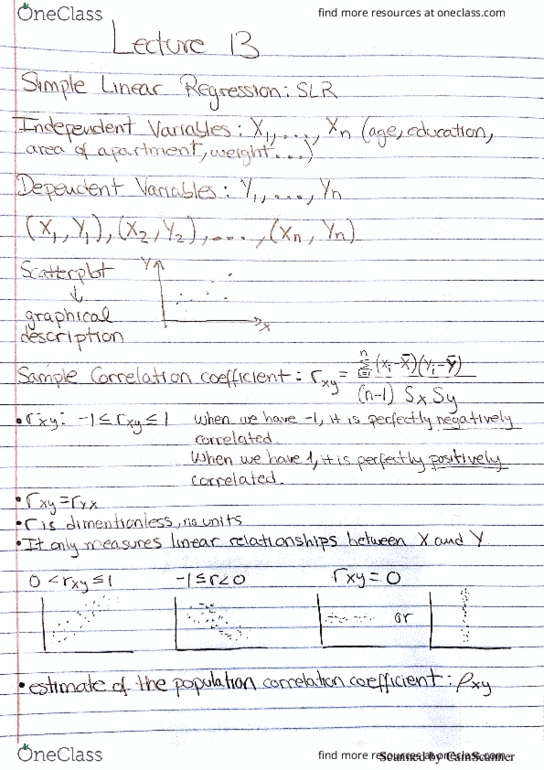 OneClass
find more resources at oneclass.com
Lecture 13
Simple Linear Regression: SLR
Independent Variables: X1,..., Xn (age, education,
area of apartment, weight...)
Dependent Variables: Y1,...., Yn
(X1, Y1), (X2, Y2),...., (Xn, Yn)
Scatterplot
↓
graphical
description
Y
X
Sample Correlation coefficient: rxy = Σ(i=1 to n) (xi-x̄)(yi-ȳ) / (n-1) Sx Sy
• rxy: -1 ≤ rxy ≤ 1 When we have -1, it is perfectly negatively
correlated.
When we have 1, it is perfectly positively
correlated.
• rxy = ryx
• r is dimentionless, no units
• It only measures linear relationships between X and Y
0 < rxy ≤ 1 -1 ≤ r < 0 rxy = 0
or
• estimate of the population correlation coefficient: ρxy
OneClass
find more resources at oneclass.com
Scanned by CamScanner